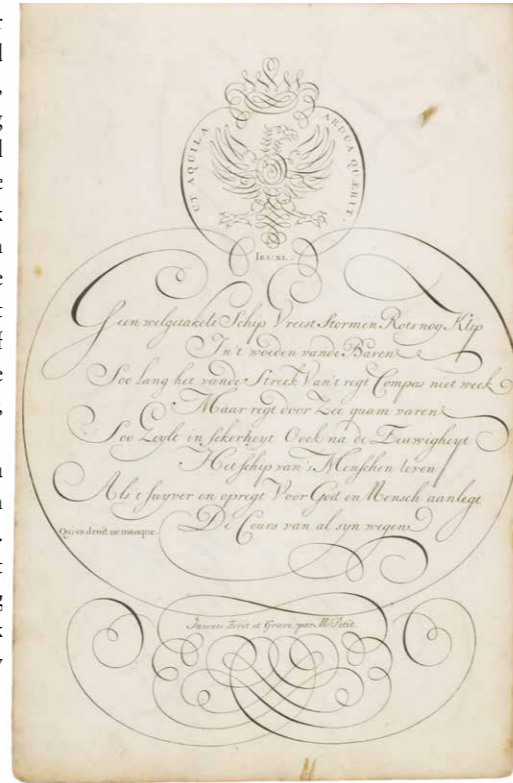 UT AQUILA ARDUA QUÆRIT.
IES: XL.
Geen welgetakelt Schip Vreest Stormen Rots nog Klip
In't woeden vande Baren
Soo lang het vande Streek Van't regt Compas niet week
Maar regt door Zee quam varen
Soo Zeylt in sekerheyt Oock na de Eeuwigheyt
Het schip van's Menschen leven
Als't suyver en opregt Voor God en Mensch aanlegt
De Cours van al syn wegen
Qui va droit ne manque
Invente Ecrit et Gravé par M. Petit.